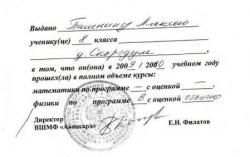 Выдано Паленину Алексею
ученику(це) 8 класса
д. Скородум
в том, что он(она) в 2009/2010 учебном году
прошел(ла) в полном объеме курсы:
математики по программе — с оценкой —,
физики по программе В с оценкой отлично
Директор
ВШМФ «Авангард» Е.Н. Филатов